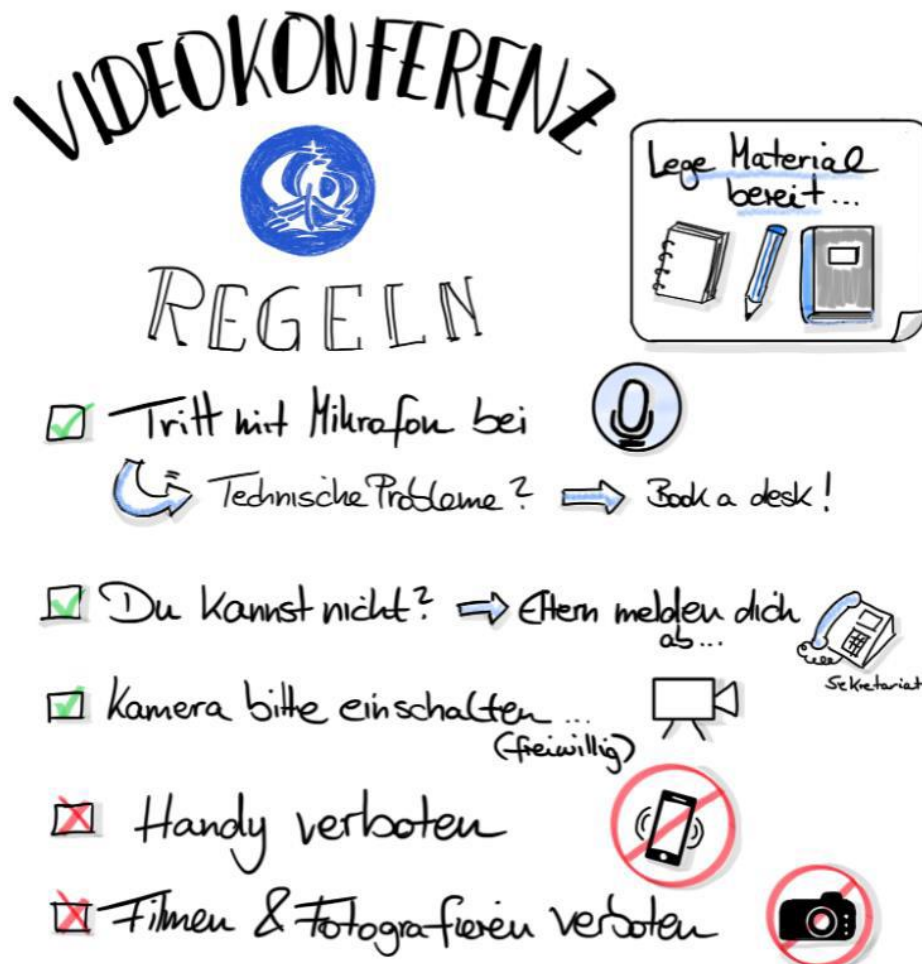 VIDEOKONFERENZ
REGELN
Lege Material
bereit...
Tritt mit Mikrofon bei
Technische Probleme? → Book a desk!
Du kannst nicht? → Eltern melden dich
ab...
Sekretariat
Kamera bitte einschalten...
(freiwillig)
Handy verboten
Filmen & Fotografieren verboten